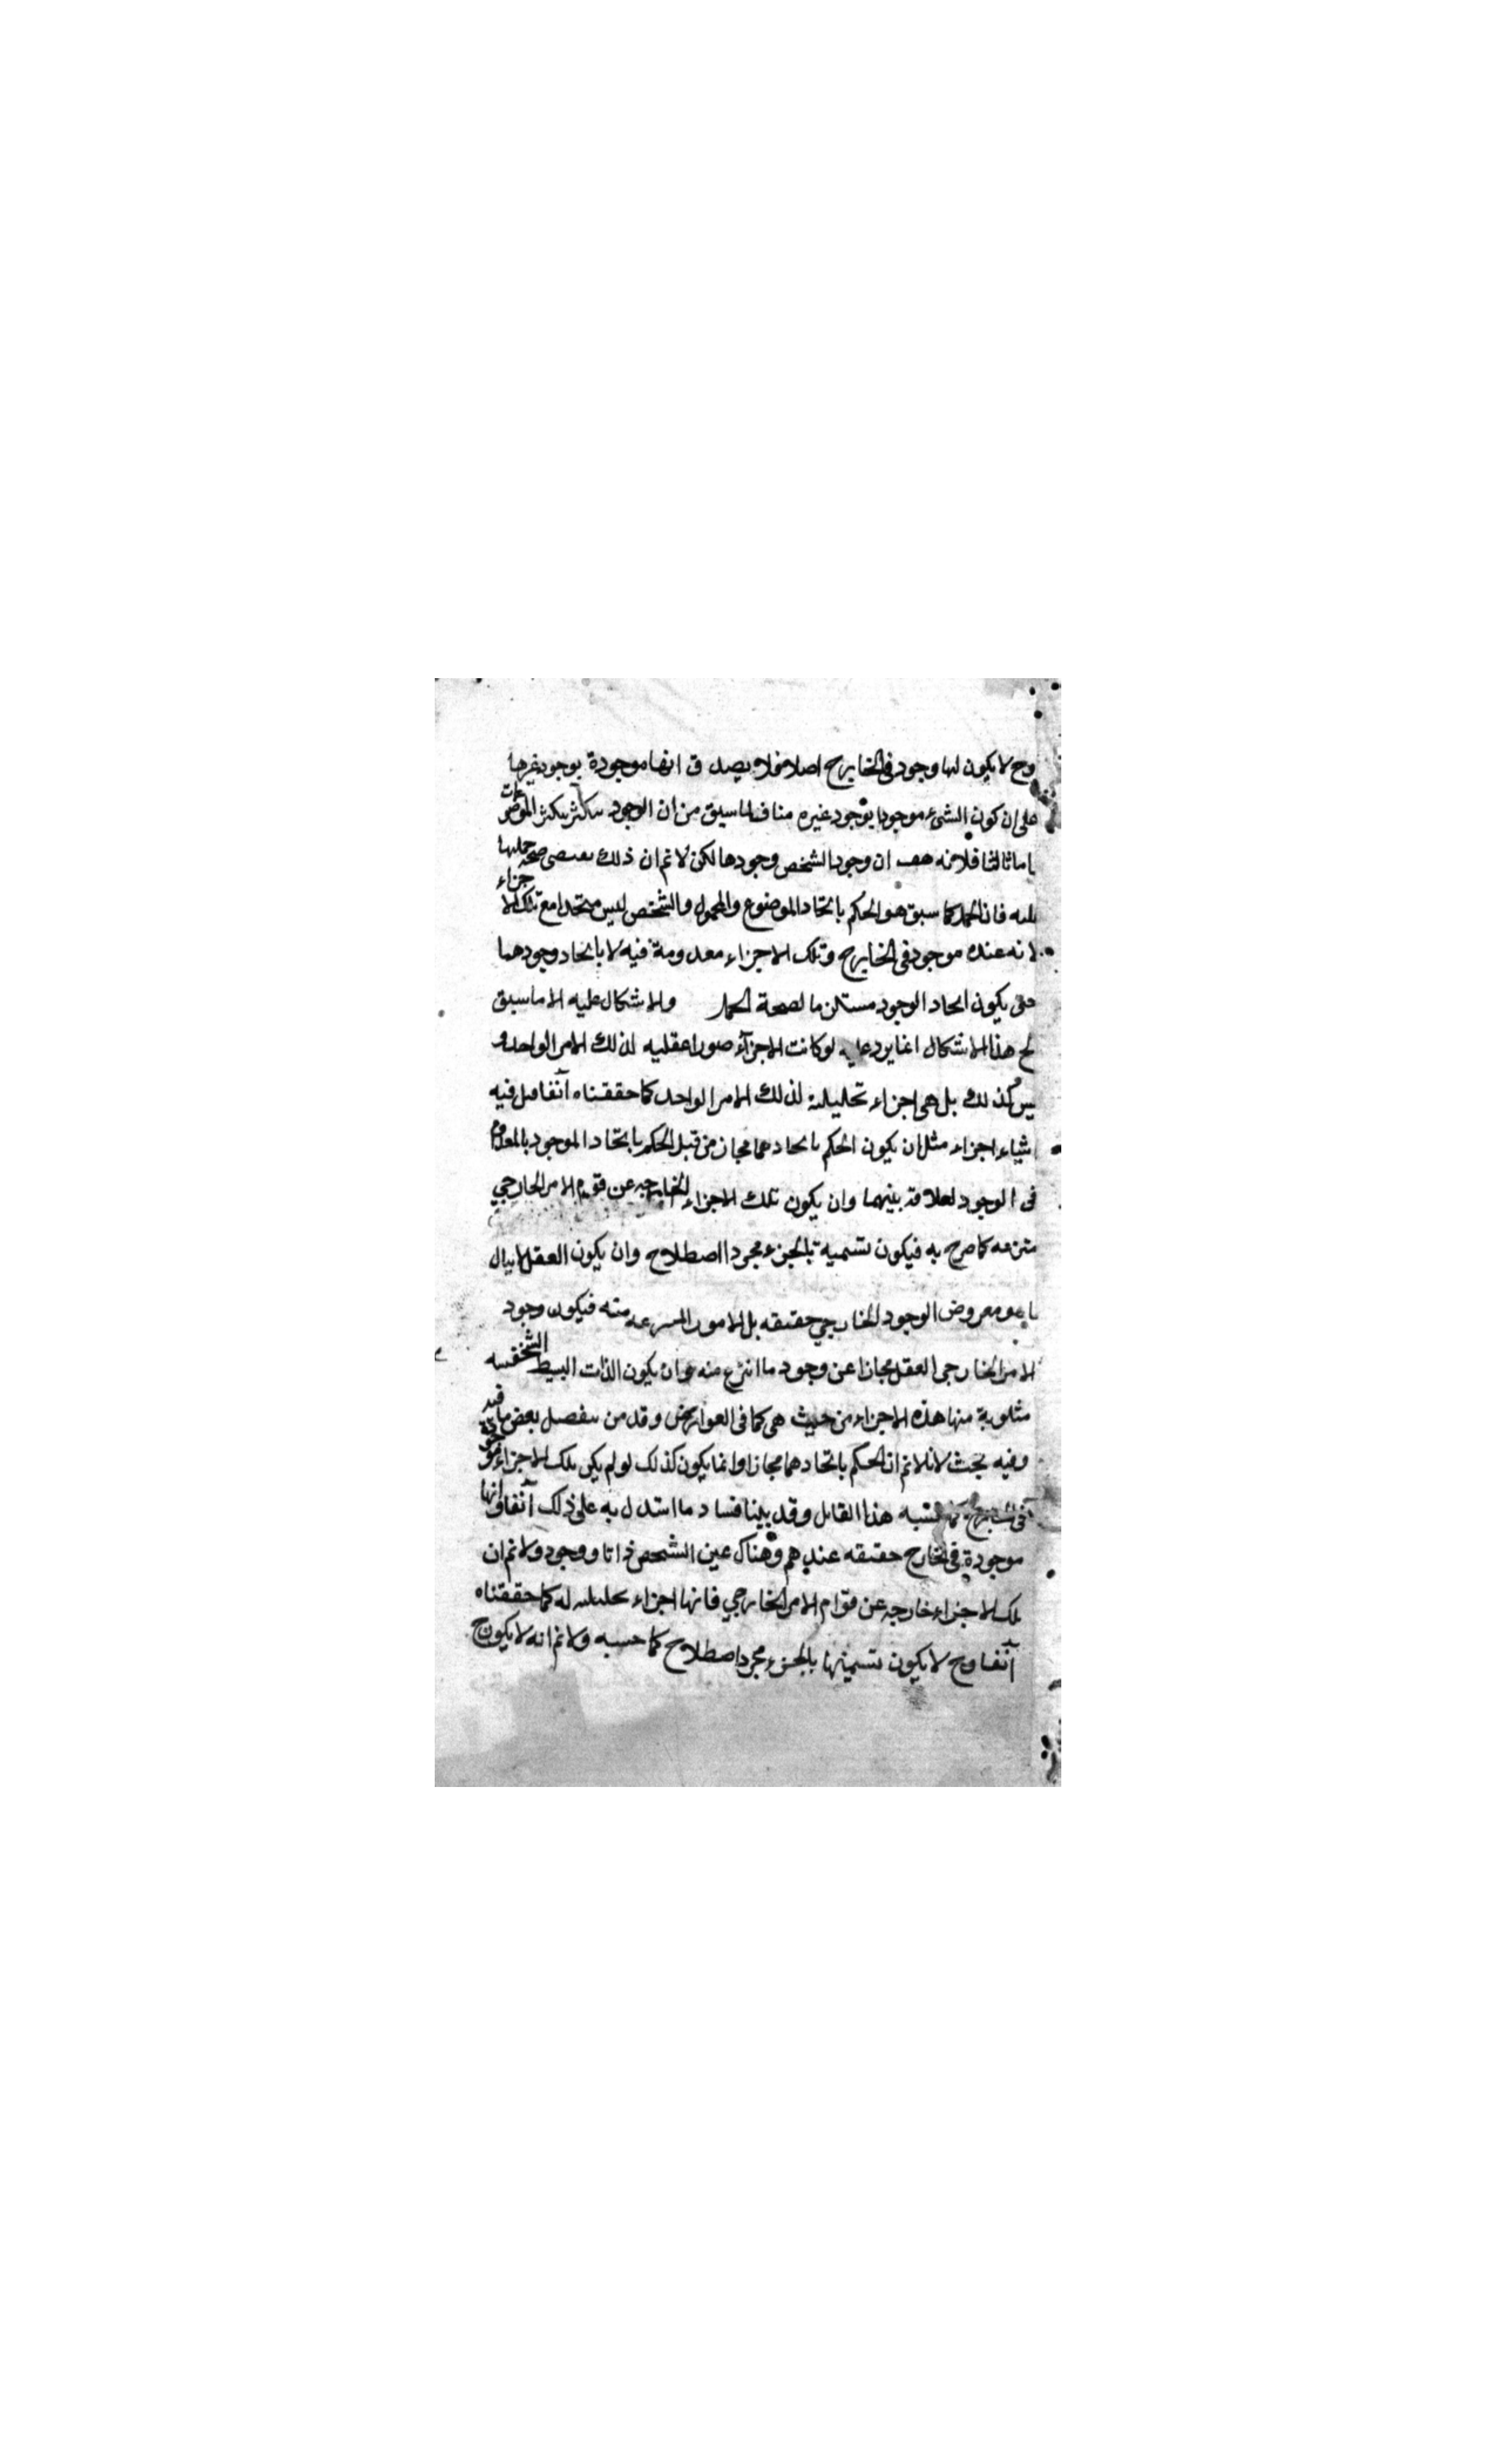 وح لا يكون لها وجود فى الخارج اصلا فلا يصدق انها موجودة بوجود غيرها
على ان كون الشىء موجودا بوجود غيره مناف لما سبق من ان الوجود يتكثر بتكثر الموضوعات
اما ثالثا فلانه ان وجود الشخص وجودها لكن لا نم ان ذلك يقتضى صحة حملها
عليه فان الحمل كما سبق هو الحكم باتحاد الموضوع والمحمول والشخص ليس متحدا مع تلك الاجزاء
لانه عنده موجود فى الخارج وتلك الاجزاء معدومة فيه لا باتحاد وجودهما
حتى يكون اتحاد الوجود مستلزما لصحة الحمل والاشكال عليه الا ما سبق
لح هذا الاشكال انما يرد عليه لو كانت الاجزاء صورا عقلية لذلك الامر الواحد و
يس كذلك بل هى اجزاء تحليلية لذلك الامر الواحد كما حققناه آنفا قيل فيه
اشياء اجزاء مثل ان يكون الحكم باتحادهما مجاز من قبل الحكم باتحاد الموجود بالمعدوم
فى الوجود لعلاقة بينهما وان يكون تلك الاجزاء الخارجه عن قوام الامر الخارجي
متنزعه كما صرح به فيكون تسميته بالجزء مجرد اصطلاح وان يكون العقل لا ينال
ما هو معروض الوجود الخارجي حقيقه بل الامور المنتزعه منه فيكون وجود
الامر الخارجى العقل مجازا عن وجود ما انتزع منه وان يكون الذات البسيط الشخصيه
مثلوبة منها هذه الاجزاء من حيث هى كما فى العوارض وقد من بتفصيل بعض ما فيه
وفيه بحث لانا لا نم ان الحكم باتحادهما مجازا وانما يكون كذلك لو لم يكن تلك الاجزاء موجودة
فى الخارج كما حسبه هذا القائل وقد بينا فساد ما استدل به على ذلك آنفا وانها
موجودة فى الخارج حقيقه عندهم وهناك عين الشخص ذاتا ووجودا ولا نم ان
تلك الاجزاء خارجه عن قوام الامر الخارجي فانها اجزاء تحليليه له كما حققناه
آنفا وح لا يكون تسميتها بالجزء مجرد اصطلاح كما حسبه ولا نم انه لا يكون ح